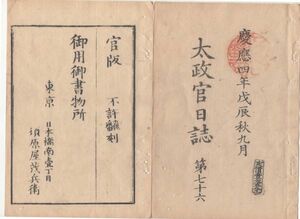 慶應四年戊辰秋九月
太政官日誌 第七十六
官版 不許飜刻
御用御書物所
東京 日本橋南壹丁目
須原屋茂兵衛